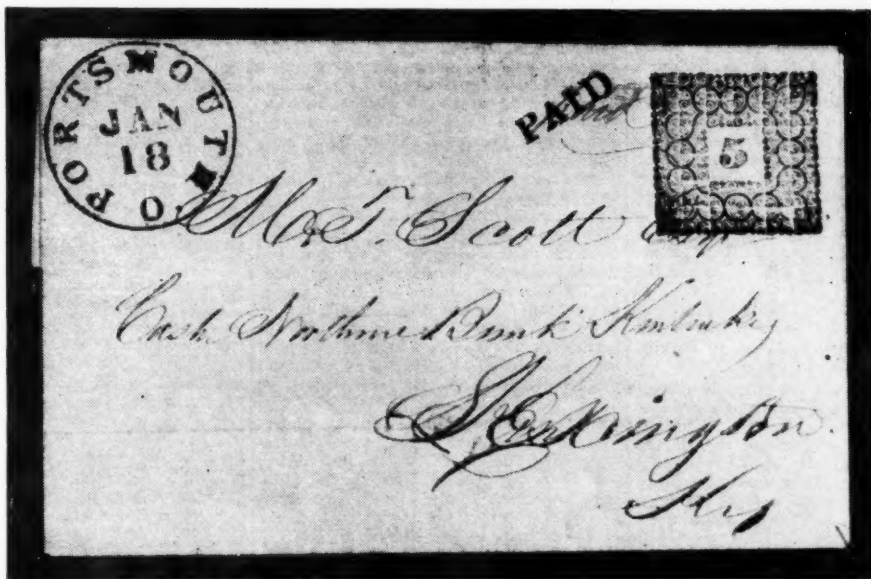 PORTSMOUTH O
JAN
18
PAID
Paid
5
M. T. Scott Esqr
Cash Northern Bank Kentucky
Lexington
Ky